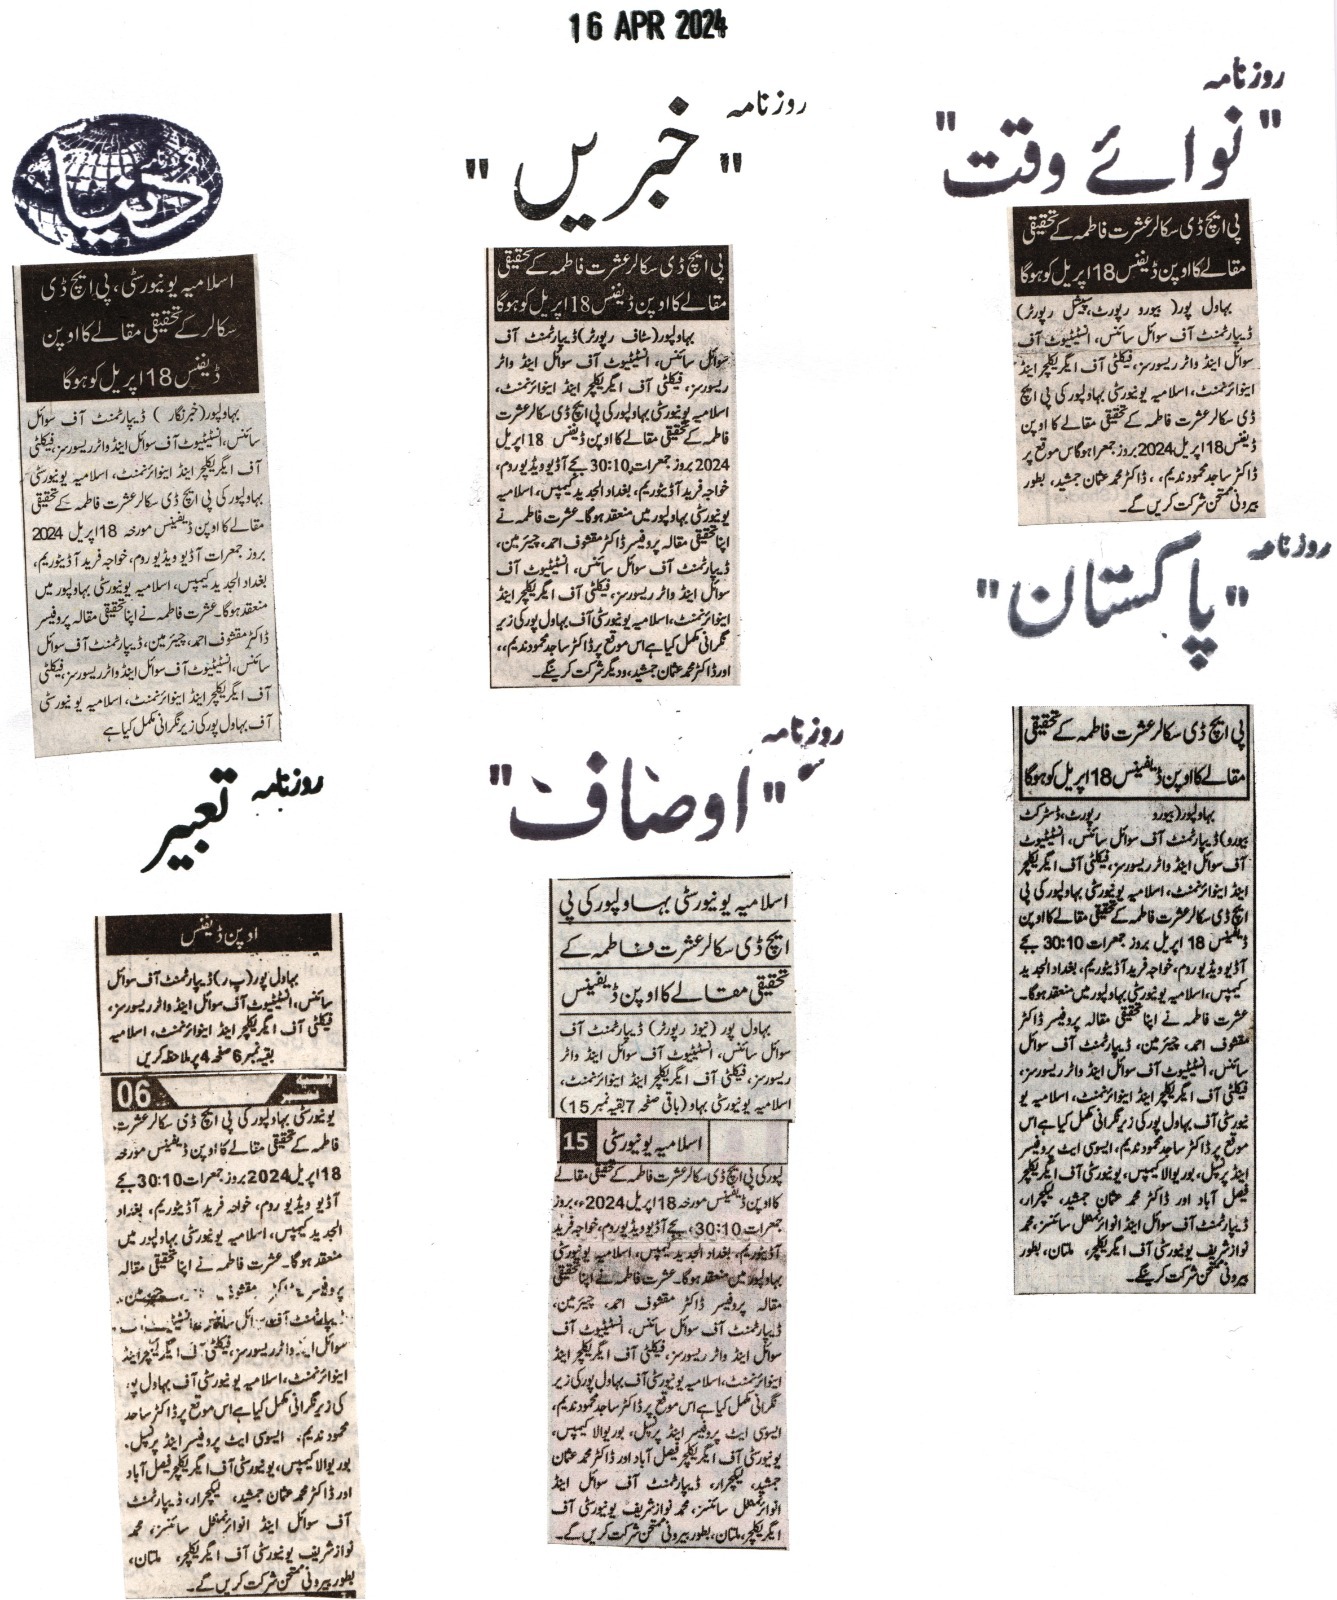 16 APR 2024
روزنامہ
"نوائے وقت"
پی ایچ ڈی سکالر عشرت فاطمہ کے تحقیقی
مقالے کا اوپن ڈیفنس 18 اپریل کو ہوگا
بہاول پور( بیورو رپورٹ، سپیشل رپورٹر)
ڈیپارٹمنٹ آف سوائل سائنس، انسٹیٹیوٹ آف
سوائل اینڈ واٹر ریسورسز، فیکلٹی آف ایگریکلچر اینڈ
اینوائرنمنٹ، اسلامیہ یونیورسٹی بہاولپور کی پی ایچ
ڈی سکالر عشرت فاطمہ کے تحقیقی مقالے کا اوپن
ڈیفنس 18 اپریل 2024 بروز جمعرا ہوگا اس موقع پر
ڈاکٹر ساجد محمود ندیم، ، ڈاکٹر محمد عثمان جمشید، بطور
بیرونی ممتحن شرکت کریں گے۔
روزنامہ
"خبریں"
پی ایچ ڈی سکالر عشرت فاطمہ کے تحقیقی
مقالے کا اوپن ڈیفنس 18 اپریل کو ہوگا
بہاولپور (سٹاف رپورٹر) ڈیپارٹمنٹ آف
سوائل سائنس، انسٹیٹیوٹ آف سوائل اینڈ واٹر
ریسورسز، فیکلٹی آف ایگریکلچر اینڈ اینوائرنمنٹ،
اسلامیہ یونیورسٹی بہاولپور کی پی ایچ ڈی سکالر عشرت
فاطمہ کے تحقیقی مقالے کا اوپن ڈیفنس 18 اپریل
2024 بروز جمعرات 30:10 بجے آڈیو ویڈیو روم،
خواجہ فرید آڈیٹوریم، بغداد الجدید کیمپس، اسلامیہ
یونیورسٹی بہاولپور میں منعقد ہوگا۔ عشرت فاطمہ نے
اپنا تحقیقی مقالہ پروفیسر ڈاکٹر مقشوف احمد، چیئرمین،
ڈیپارٹمنٹ آف سوائل سائنس، انسٹیٹیوٹ آف
سوائل اینڈ واٹر ریسورسز، فیکلٹی آف ایگریکلچر اینڈ
اینوائرنمنٹ، اسلامیہ یونیورسٹی آف بہاول پور کی زیر
نگرانی مکمل کیا ہے اس موقع پر ڈاکٹر ساجد محمود ندیم، ،
اور ڈاکٹر محمد عثمان جمشید، و دیگر شرکت کرینگے۔
روزنامہ دنیا
اسلامیہ یونیورسٹی، پی ایچ ڈی
سکالر کے تحقیقی مقالے کا اوپن
ڈیفنس 18 اپریل کو ہوگا
بہاولپور (خبرنگار ) ڈیپارٹمنٹ آف سوائل
سائنس، انسٹیٹیوٹ آف سوائل اینڈ واٹر ریسورسز، فیکلٹی
آف ایگریکلچر اینڈ اینوائرنمنٹ، اسلامیہ یونیورسٹی
بہاولپور کی پی ایچ ڈی سکالر عشرت فاطمہ کے تحقیقی
مقالے کا اوپن ڈیفینس مورخہ 18 اپریل 2024
بروز جمعرات آڈیو ویڈیو روم، خواجہ فرید آڈیٹوریم،
بغداد الجدید کیمپس، اسلامیہ یونیورسٹی بہاولپور میں
منعقد ہوگا۔ عشرت فاطمہ نے اپنا تحقیقی مقالہ پروفیسر
ڈاکٹر مقشوف احمد، چیئرمین، ڈیپارٹمنٹ آف سوائل
سائنس، انسٹیٹیوٹ آف سوائل اینڈ واٹر ریسورسز، فیکلٹی
آف ایگریکلچر اینڈ اینوائرنمنٹ، اسلامیہ یونیورسٹی
آف بہاول پور کی زیر نگرانی مکمل کیا ہے
روزنامہ
"پاکستان"
پی ایچ ڈی سکالر عشرت فاطمہ کے تحقیقی
مقالے کا اوپن ڈیفینس 18 اپریل کو ہوگا
بہاولپور (بیورو رپورٹ، ڈسٹرکٹ
بیورو) ڈیپارٹمنٹ آف سوائل سائنس، انسٹیٹیوٹ
آف سوائل اینڈ واٹر ریسورسز، فیکلٹی آف ایگریکلچر
اینڈ اینوائرنمنٹ، اسلامیہ یونیورسٹی بہاولپور کی پی
ایچ ڈی سکالر عشرت فاطمہ کے تحقیقی مقالے کا اوپن
ڈیفینس 18 اپریل بروز جمعرات 30:10 بجے
آڈیو ویڈیو روم، خواجہ فرید آڈیٹوریم، بغداد الجدید
کیمپس، اسلامیہ یونیورسٹی بہاولپور میں منعقد ہوگا۔
عشرت فاطمہ نے اپنا تحقیقی مقالہ پروفیسر ڈاکٹر
مقشوف احمد، چیئرمین، ڈیپارٹمنٹ آف سوائل
سائنس، انسٹیٹیوٹ آف سوائل اینڈ واٹر ریسورسز،
فیکلٹی آف ایگریکلچر اینڈ اینوائرنمنٹ، اسلامیہ یو
نیورسٹی آف بہاول پور کی زیر نگرانی مکمل کیا ہے اس
موقع پر ڈاکٹر ساجد محمود ندیم، ایسوسی ایٹ پروفیسر
اینڈ پرنسپل، بوریوالا کیمپس، یونیورسٹی آف ایگریکلچر
فیصل آباد اور ڈاکٹر محمد عثمان جمشید، لیکچرار،
ڈیپارٹمنٹ آف سوائل اینڈ انوائرنمنٹل سائنسز، محمد
نواز شریف یونیورسٹی آف ایگریکلچر، ملتان، بطور
بیرونی ممتحن شرکت کرینگے۔
روزنامہ
"اوصاف"
اسلامیہ یونیورسٹی بہاولپور کی پی
ایچ ڈی سکالر عشرت فاطمہ کے
تحقیقی مقالے کا اوپن ڈیفینس
بہاول پور (نیوز رپورٹر) ڈیپارٹمنٹ آف
سوائل سائنس، انسٹیٹیوٹ آف سوائل اینڈ واٹر
ریسورسز، فیکلٹی آف ایگریکلچر اینڈ اینوائرنمنٹ،
اسلامیہ یونیورسٹی بہاو (باقی صفحہ 7 بقیہ نمبر 15)
اسلامیہ یونیورسٹی 15
لپور کی پی ایچ ڈی سکالر عشرت فاطمہ کے تحقیقی مقالے
کا اوپن ڈیفینس مورخہ 18 اپریل 2024ء، بروز
جمعرات 30:10، بجے آڈیو ویڈیو روم، خواجہ فرید
آڈیٹوریم، بغداد الجدید کیمپس، اسلامیہ یونیورسٹی
بہاولپور میں منعقد ہوگا۔ عشرت فاطمہ نے اپنا تحقیقی
مقالہ پروفیسر ڈاکٹر مقشوف احمد، چیئرمین،
ڈیپارٹمنٹ آف سوائل سائنس، انسٹیٹیوٹ آف
سوائل اینڈ واٹر ریسورسز، فیکلٹی آف ایگریکلچر اینڈ
اینوائرنمنٹ، اسلامیہ یونیورسٹی آف بہاول پور کی زیر
نگرانی مکمل کیا ہے اس موقع پر ڈاکٹر ساجد محمود ندیم،
ایسوسی ایٹ پروفیسر اینڈ پرنسپل، بوریوالا کیمپس،
یونیورسٹی آف ایگریکلچر فیصل آباد اور ڈاکٹر محمد عثمان
جمشید، لیکچرار، ڈیپارٹمنٹ آف سوائل اینڈ
انوائرنمنٹل سائنسز، محمد نواز شریف یونیورسٹی آف
ایگریکلچر، ملتان، بطور بیرونی ممتحن شرکت کریں گے۔
روزنامہ تعبیر
اوپن ڈیفنس
بہاول پور (پ ر) ڈیپارٹمنٹ آف سوائل
سائنس، انسٹیٹیوٹ آف سوائل اینڈ واٹر ریسورسز،
فیکلٹی آف ایگریکلچر اینڈ اینوائرنمنٹ، اسلامیہ
بقیہ نمبر 6 صفحہ 4 پر ملاحظہ کریں
06
یونیورسٹی بہاولپور کی پی ایچ ڈی سکالر عشرت،
فاطمہ کے تحقیقی مقالے کا اوپن ڈیفینس مورخہ
18 اپریل 2024 بروز جمعرات 30:10 بجے
آڈیو ویڈیو روم، خواجہ فرید آڈیٹوریم، بغداد
الجدید کیمپس، اسلامیہ یونیورسٹی بہاولپور میں
منعقد ہوگا۔ عشرت فاطمہ نے اپنا تحقیقی مقالہ
پروفیسر ڈاکٹر چیئرمین،
ڈیپارٹمنٹ آف سوائل سائنس، انسٹیٹیوٹ آف
سوائل اینڈ واٹر ریسورسز، فیکلٹی آف ایگریکلچر اینڈ
اینوائرنمنٹ، اسلامیہ یونیورسٹی آف بہاول پور
کی زیر نگرانی مکمل کیا ہے اس موقع پر ڈاکٹر ساجد
محمود ندیم، ایسوسی ایٹ پروفیسر اینڈ پرنسپل،
بوریوالا کیمپس، یونیورسٹی آف ایگریکلچر فیصل آباد
اور ڈاکٹر محمد عثمان جمشید، لیکچرار، ڈیپارٹمنٹ
آف سوائل اینڈ انوائرنمنٹل سائنسز، محمد
نواز شریف یونیورسٹی آف ایگریکلچر، ملتان،
بطور بیرونی ممتحن شرکت کریں گے۔